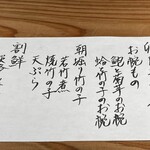 お椀もの
鮑と蕪のお椀
蛤と竹の子のお椀
朝堀り竹の子
若竹煮
焼竹の子
天ぷら
割鮮